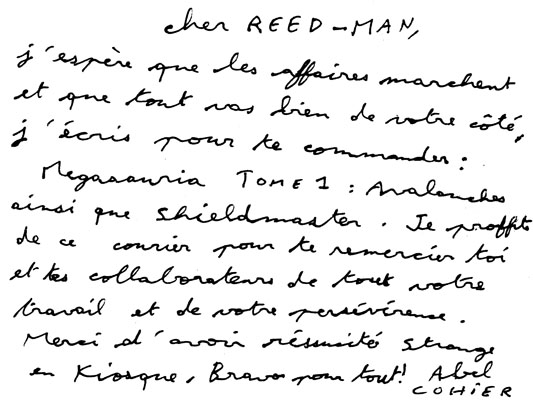 cher REED-MAN,
j'espère que les affaires marchent
et que tout vas bien de votre côté,
j'écris pour te commander :
Megaaauria TOME 1 : Avalanches
ainsi que shieldmaster. Je proffits
de ce courier pour te remercier toi
et tes collaborateurs de tout votre
travail et de votre persévérence.
Merci d'avoir réssucité Strange
en Kiosque, Bravo pour tout! Abel
COHIER